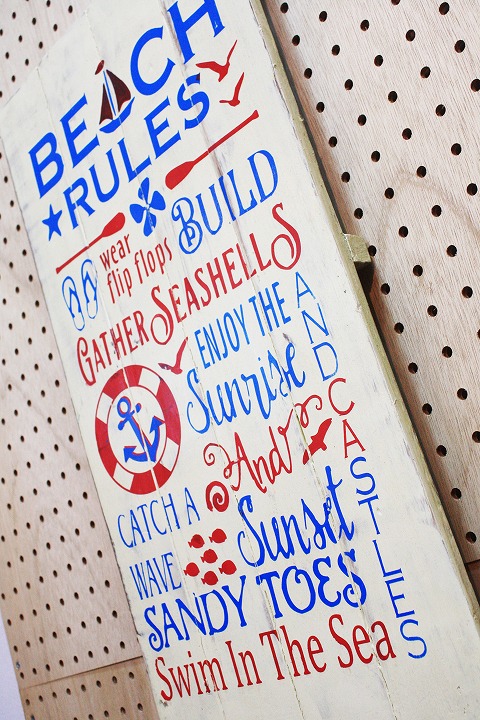 BEACH
RULES
wear
flip flops
BUILD
GATHER SEASHELLS
AND CASTLES
ENJOY THE
Sunrise
And
CATCH A
WAVE
Sunset
SANDY TOES
Swim In The Sea